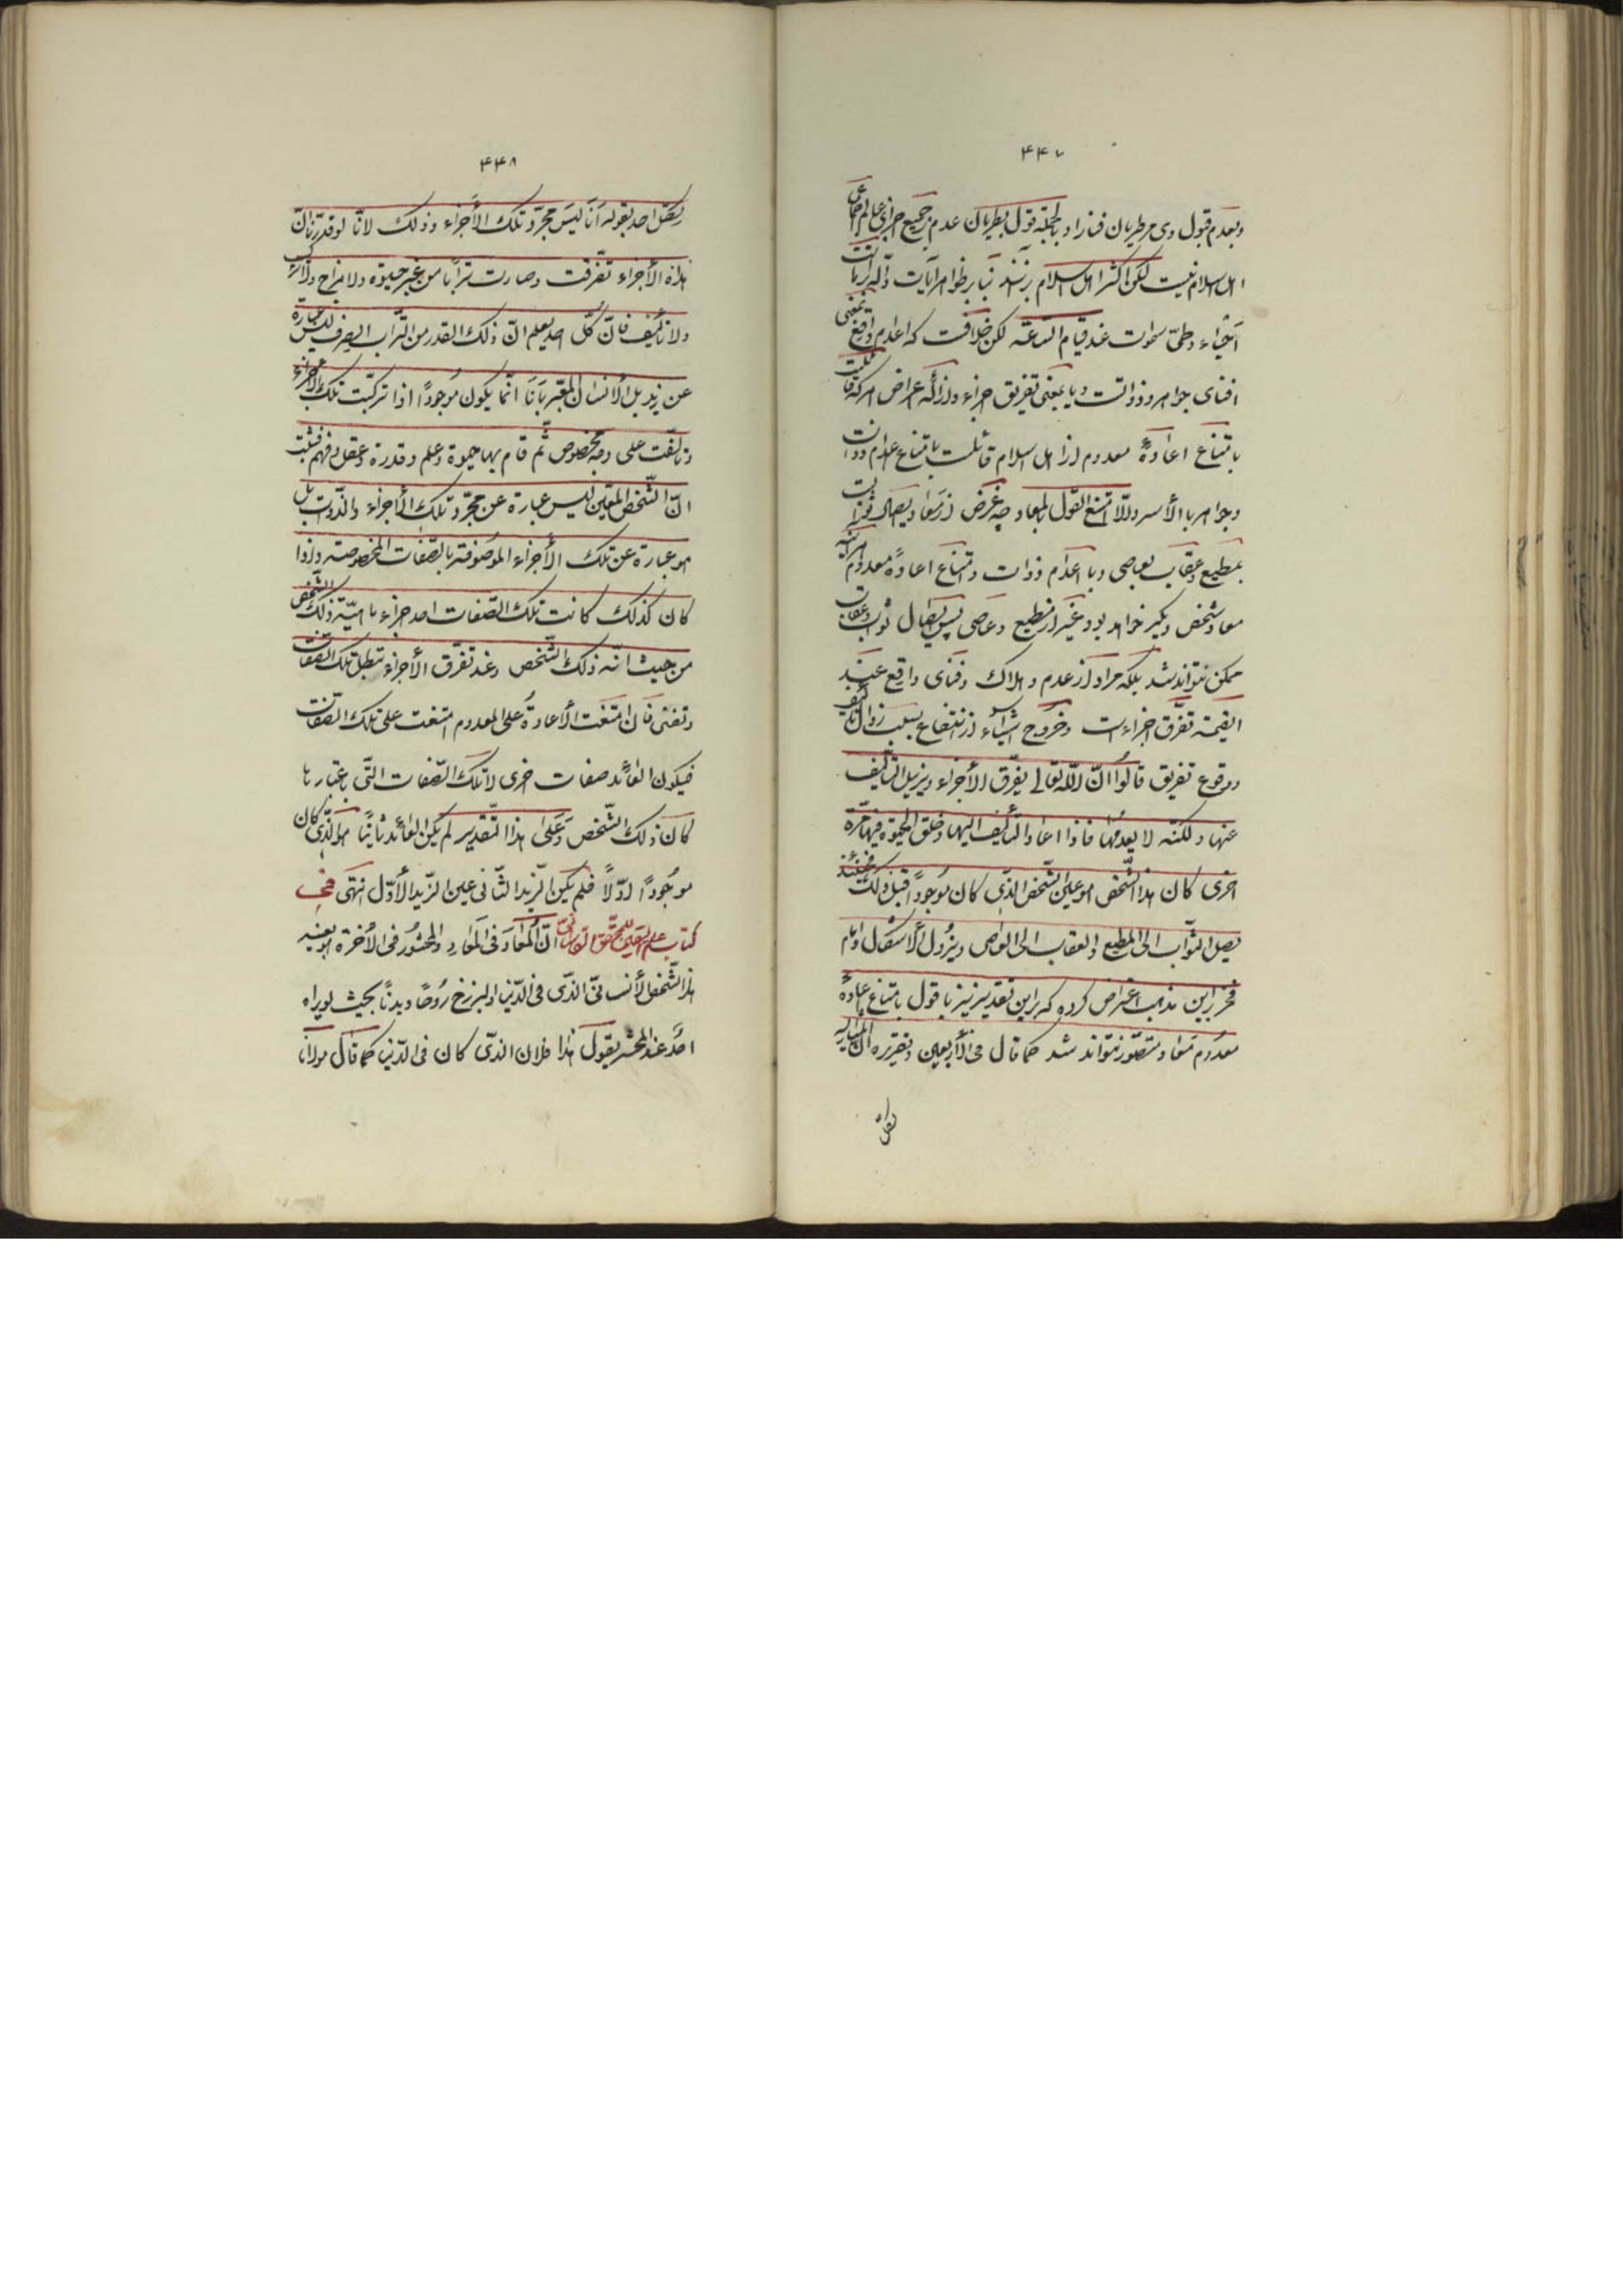 ۴۴۷
وبعدم قبول وی مر طریان فنا را و بالجمله قول بطریان عدم بر جمیع اجزای عالم اجماعی
اهل اسلام نیست لکن اکثر اهل اسلام برنند بنا بر ظواهر آیات داله بر اماتت
احیاء وطی سموات عند قیام الساعه لکن خلافست که اعدام واقع بمعنی
افنای جواهر وذواتست و یا بمعنی تفریق اجزاء وازاله اعراض هر که قایلست
بامتناع اعادهٔ معدوم از اهل اسلام قائلست بامتناع اعدام ذوات
وجواهر بالأسر والا امتنع القول بالمعاد چه غرض از معاد ایصال ثوابست
بمطیع وعقاب بعاصی وبا اعدام ذوات وامتناع اعادهٔ معدوم هر آینه
معاد شخص دیگر خواهد بود غیر از مطیع وعاصی پس ایصال ثواب وعقاب
ممکن نتواند شد بلکه مراد از عدم و هلاک وفنای واقع عند
القیمة تفرق اجزاءست وخروج اشیاء از انتفاع بسبب زوال تألیف
ووقوع تفریق قالوا ان الله تعالی یفرق الأجزاء ویزیل التألیف
عنها ولکنه لا یعدمها فاذا اعاد التألیف الیها وخلق الحیوة فیها مرة
اخری کان هذا الشخص هو عین الشخص الذی کان موجودا قبل ذلک فحینئذ
یصل الثواب الی المطیع والعقاب الی العاصی ویزول الاشکال وامام
فخر بر این مذهب اعتراض کرده که بر این تقدیر نیز با قول بامتناع اعادهٔ
معدوم معاد متصور نتواند شد کما قال فی الأربعین وتقریره ان المشار الیه
لکل
۴۴۸
لکل احد بقوله أنا لیس مجرد تلک الأجزاء وذلک لانا لو قدرنا ان
هذه الأجزاء تفرقت وصارت ترابا من غیر حیوة ولا مزاج ولا ترکیب
ولا تألیف فان کل احد یعلم ان ذلک القدر من التراب الصرف لیس عبارة
عن زید بل الانسان المعبر بانا انما یکون موجودا اذا ترکبت تلک الأجزاء
وتألفت علی وجه مخصوص ثم قام بها حیوة وعلم وقدرة وعقل وفهم فثبت
ان الشخص المعین لیس عبارة عن مجرد تلک الأجزاء والذوات بل
هو عبارة عن تلک الأجزاء الموصوفة بالصفات المخصوصة واذا
کان کذلک کانت تلک الصفات احد اجزاء ماهیة ذلک الشخص
من حیث انه ذلک الشخص وعند تفرق الأجزاء تبطل تلک الصفات
وتفنی فان امتنعت الأعادة علی المعدوم امتنعت علی تلک الصفات
فیکون العائد صفات اخری لا تلک الصفات التی باعتبارها
کان ذلک الشخص وعلی هذا التقدیر لم یکن العائد ثانیا هو الذی کان
موجودا اولا فلم یکن الزید الثانی عین الزید الأول انتهی فی
کتاب علم الیقین للمحقق القاسانی ان المعاد فی المعاد والمحشور فی الأخرة هو بعینه
هذا الشخص الأنسانی الذی فی الدنیا والبرزخ روحا وبدنا بحیث لو یراه
احد عند المحشر یقول هذا فلان الذی کان فی الدنیا کما قال مولانا